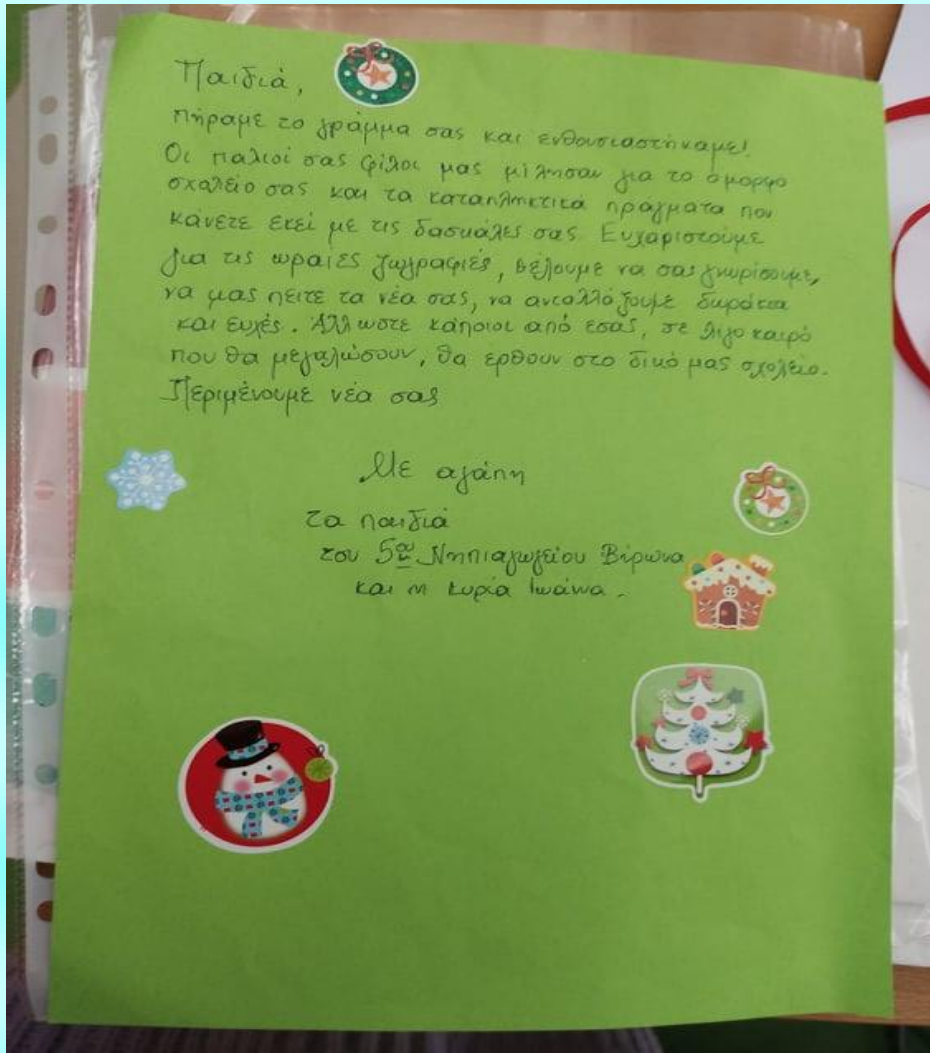 Παιδιά,
πήραμε το γράμμα σας και ενθουσιαστήκαμε!
Οι παλιοί σας φίλοι μας μίλησαν για το όμορφο
σχολείο σας και τα καταπληκτικά πράγματα που
κάνετε εκεί με τις δασκάλες σας. Ευχαριστούμε
για τις ωραίες ζωγραφιές, θέλουμε να σας γνωρίσουμε,
να μας πείτε τα νέα σας, να ανταλλάξουμε δωράκια
και ευχές. Άλλωστε κάποιοι από εσάς, σε λίγο καιρό
που θα μεγαλώσουν, θα έρθουν στο δικό μας σχολείο.
Περιμένουμε νέα σας
Με αγάπη
τα παιδιά
του 5ου Νηπιαγωγείου Βύρωνα
και η κυρία Ιωάννα.